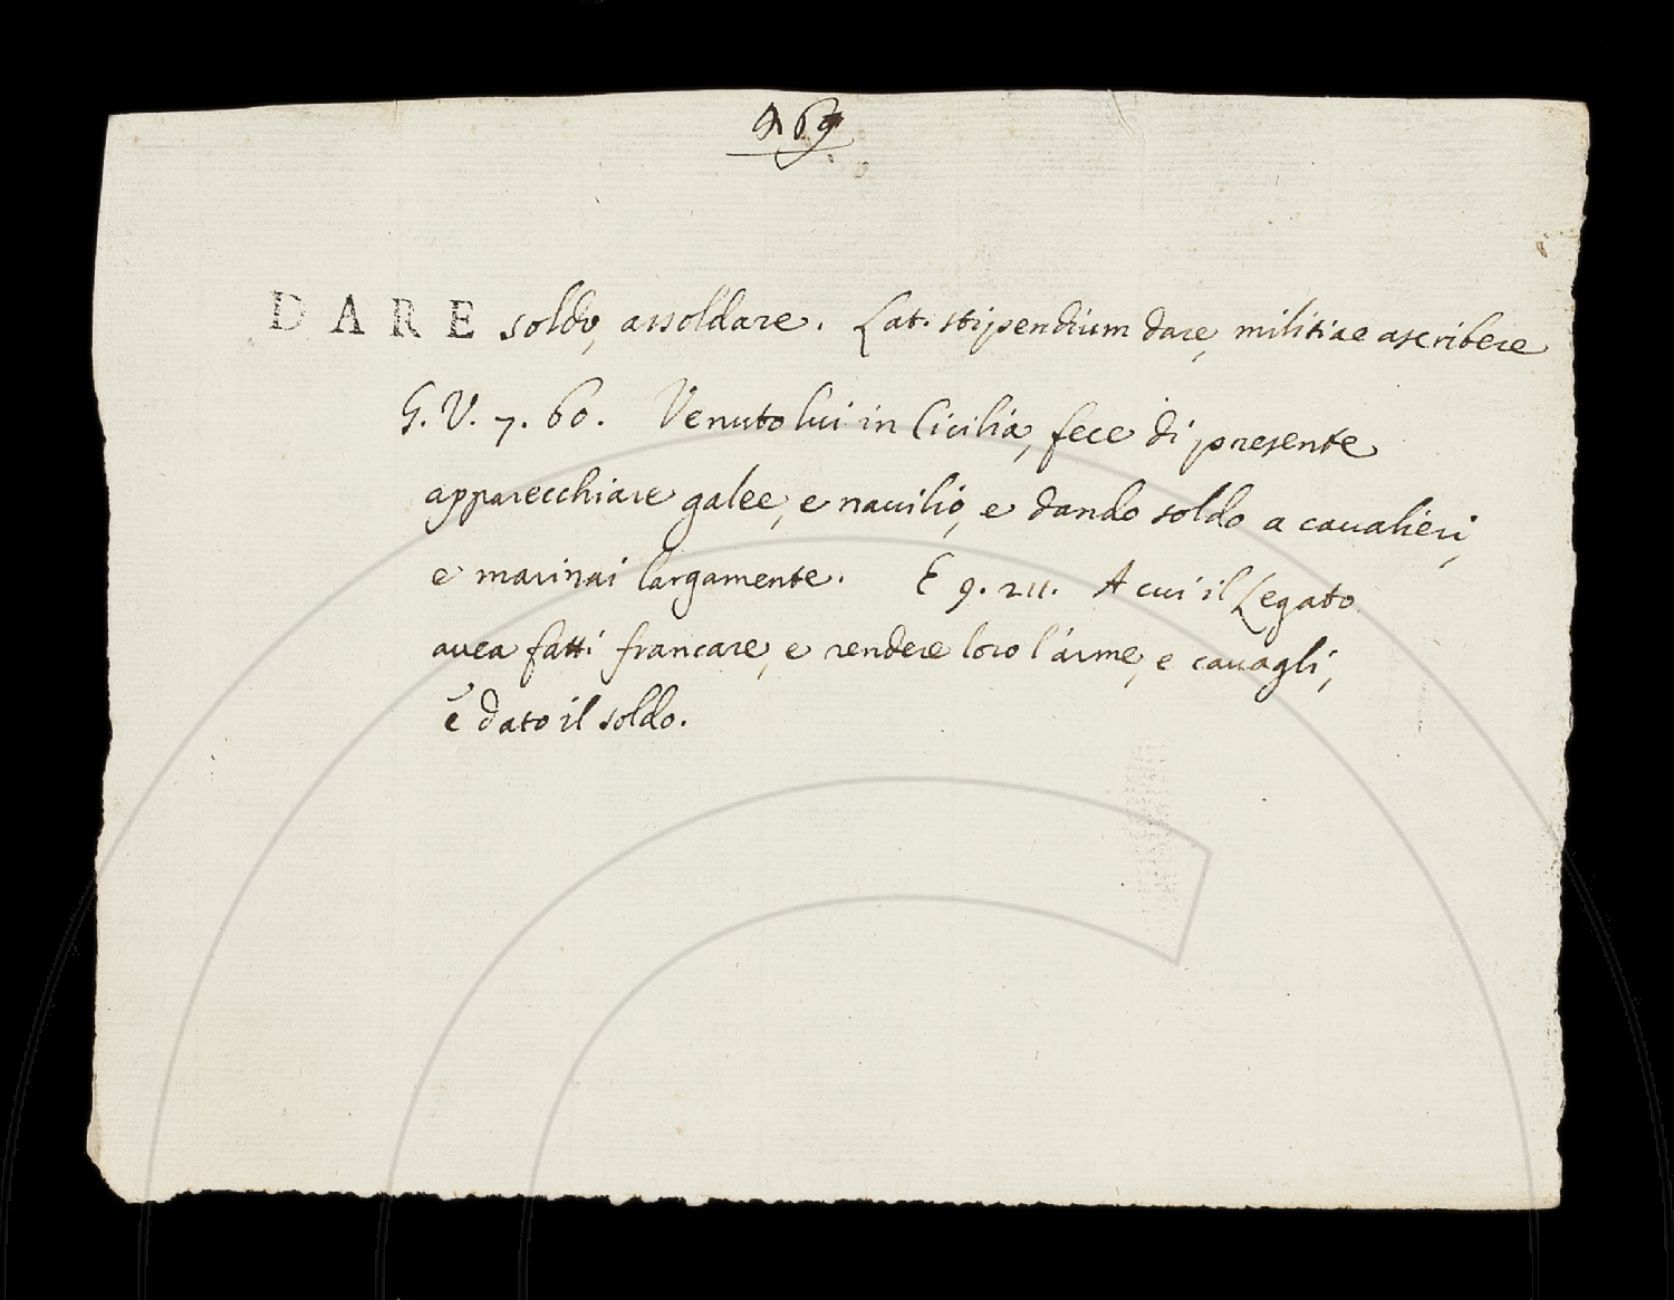 969
DARE soldo, assoldare. Lat. stipendium dare, militiae ascribere
G. V. 7. 60. Venuto lui in Cicilia, fece di presente
apparecchiare galee, e nauilio, e dando soldo a caualieri,
e marinai largamente. E 9. 211. A cui il Legato
auea fatti francare, e rendere loro l'arme, e cauagli,
è dato il soldo.